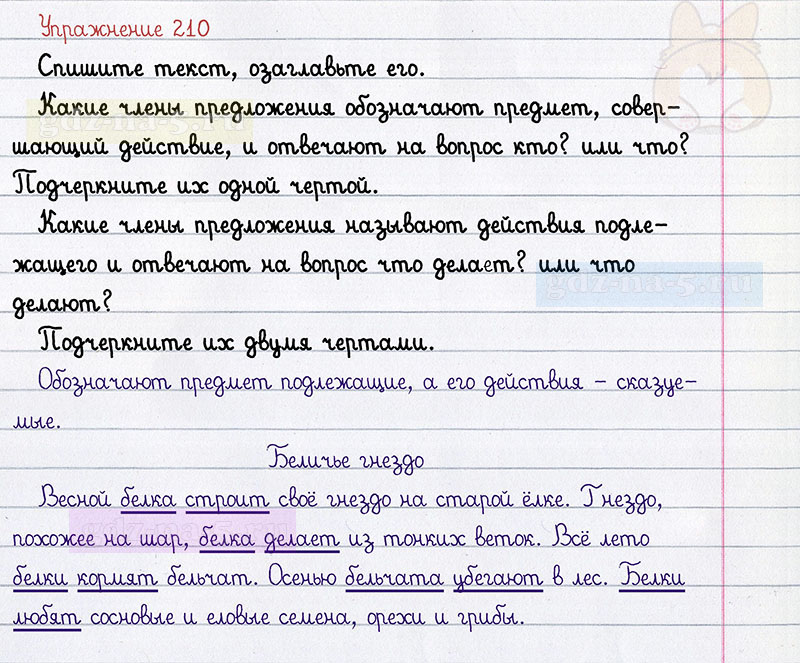 Упражнение 210
Спишите текст, озаглавьте его.
Какие члены предложения обозначают предмет, совер-
шающий действие, и отвечают на вопрос кто? или что?
Подчеркните их одной чертой.
Какие члены предложения называют действия подле-
жащего и отвечают на вопрос что делает? или что
делают?
Подчеркните их двумя чертами.
Обозначают предмет подлежащие, а его действия – сказуе-
мые.
Беличье гнездо
Весной белка строит своё гнездо на старой ёлке. Гнездо,
похожее на шар, белка делает из тонких веток. Всё лето
белки кормят бельчат. Осенью бельчата убегают в лес. Белки
любят сосновые и еловые семена, орехи и грибы.
gdz-na-5.ru
gdz-na-5.ru
gdz-na-5.ru